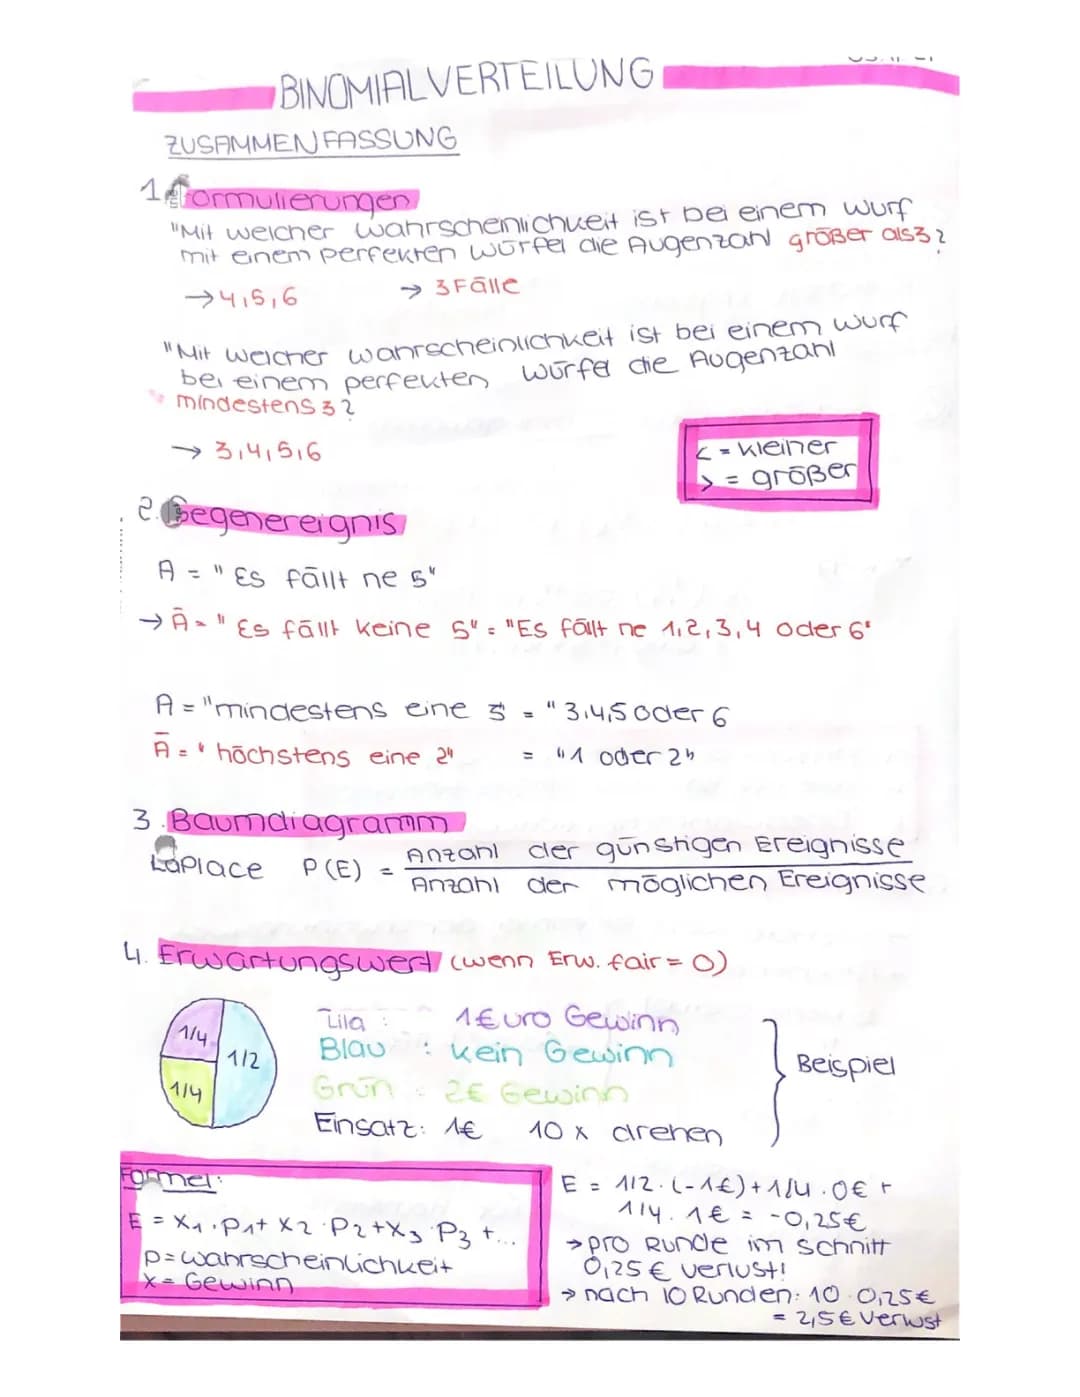 BINOMIALVERTEILUNG
ZUSAMMENFASSUNG
1. Formulierungen
"Mit welcher Wahrscheinlichkeit ist bei einem Wurf
mit einem perfekten Würfel die Augenzahl größer als 3?
→ 4,5,6 → 3 Fälle
"Mit welcher Wahrscheinlichkeit ist bei einem Wurf
bei einem perfekten Würfel die Augenzahl
mindestens 3?
→ 3,4,5,6
< = kleiner
> = größer
2. Gegenereignis
A = "Es fällt ne 5"
→ Ā = "Es fällt keine 5" = "Es fällt ne 1,2,3,4 oder 6"
A = "mindestens eine 3 = "3,4,5 oder 6
Ā = "höchstens eine 2" = "1 oder 2"
3. Baumdiagramm
LaPlace P(E) = Anzahl der günstigen Ereignisse
Anzahl der möglichen Ereignisse
4. Erwartungswert (wenn Erw. fair = 0)
1/4
1/2
1/4
Lila : 1€uro Gewinn
Blau : kein Gewinn
Grün : 2€ Gewinn
Einsatz: 1€ 10 x drehen
Beispiel
Formel:
E = X₁·P₁+ X₂·P₂+X₃·P₃ +...
P=Wahrscheinlichkeit
X= Gewinn
E = 1/2·(-1€)+1/4·0€ +
1/4·1€ = -0,25€
→ pro Runde im Schnitt
0,25€ Verlust!
→ nach 10 Runden: 10·0,25€
= 2,5€ Verlust